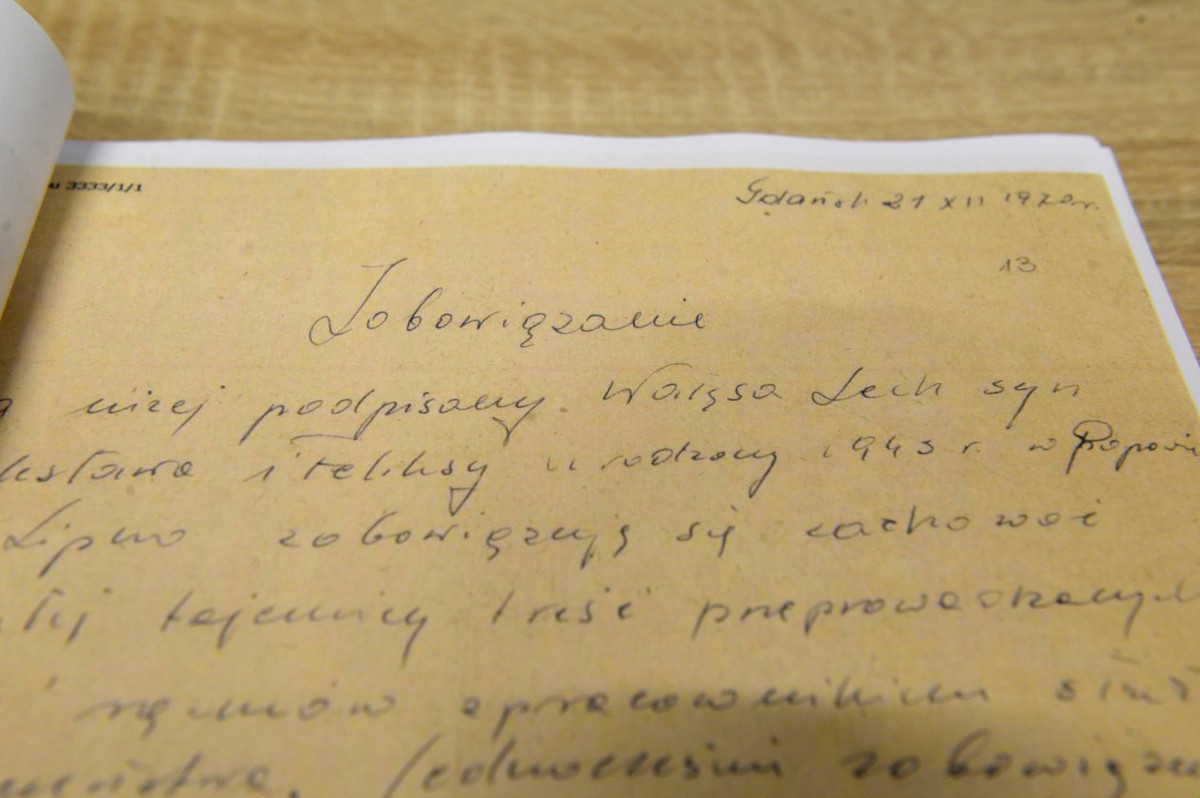 3333/1/1
Gdańsk 21 XII 1970 r.
13
Zobowiązanie
niżej podpisany Wałęsa Lech syn
i Feliksy urodzony 1943 r. w
Lipno zobowiązuję się zachować
tajemnicy treść przeprowadzanych
rozmów z pracownikiem
Jednocześnie